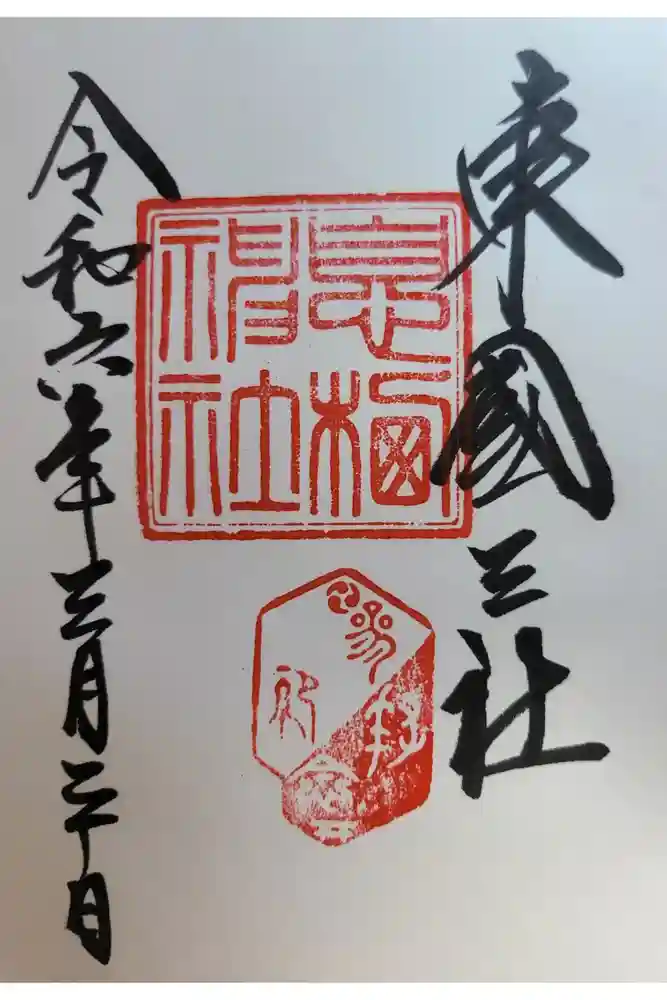 東國三社
息栖
神社
参拝
令和六年三月二十日